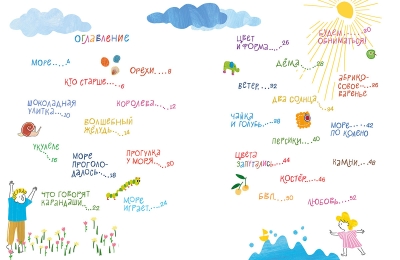 Оглавление
Море.....4
Орехи.....8
Кто старше.....6
Шоколадная
улитка.....10
Королева.....12
Волшебный
жёлудь.....14
Укулеле
16
Море
проголо-
далось.....18
Прогулка
у моря.....20
Что говорят
карандаши.....22
Море
играет.....24
Цвет
и форма.....26
Будем
обниматься!.....30
Дёма.....28
Ветер.....32
Абрико-
совое
варенье
36
Два солнца
34
Чайка
и голубь.....38
Персики.....40
Море
по колено.....42
Цвета
запутались.....44
Камни.....48
Костёр.....46
Бал.....50
Любовь.....52